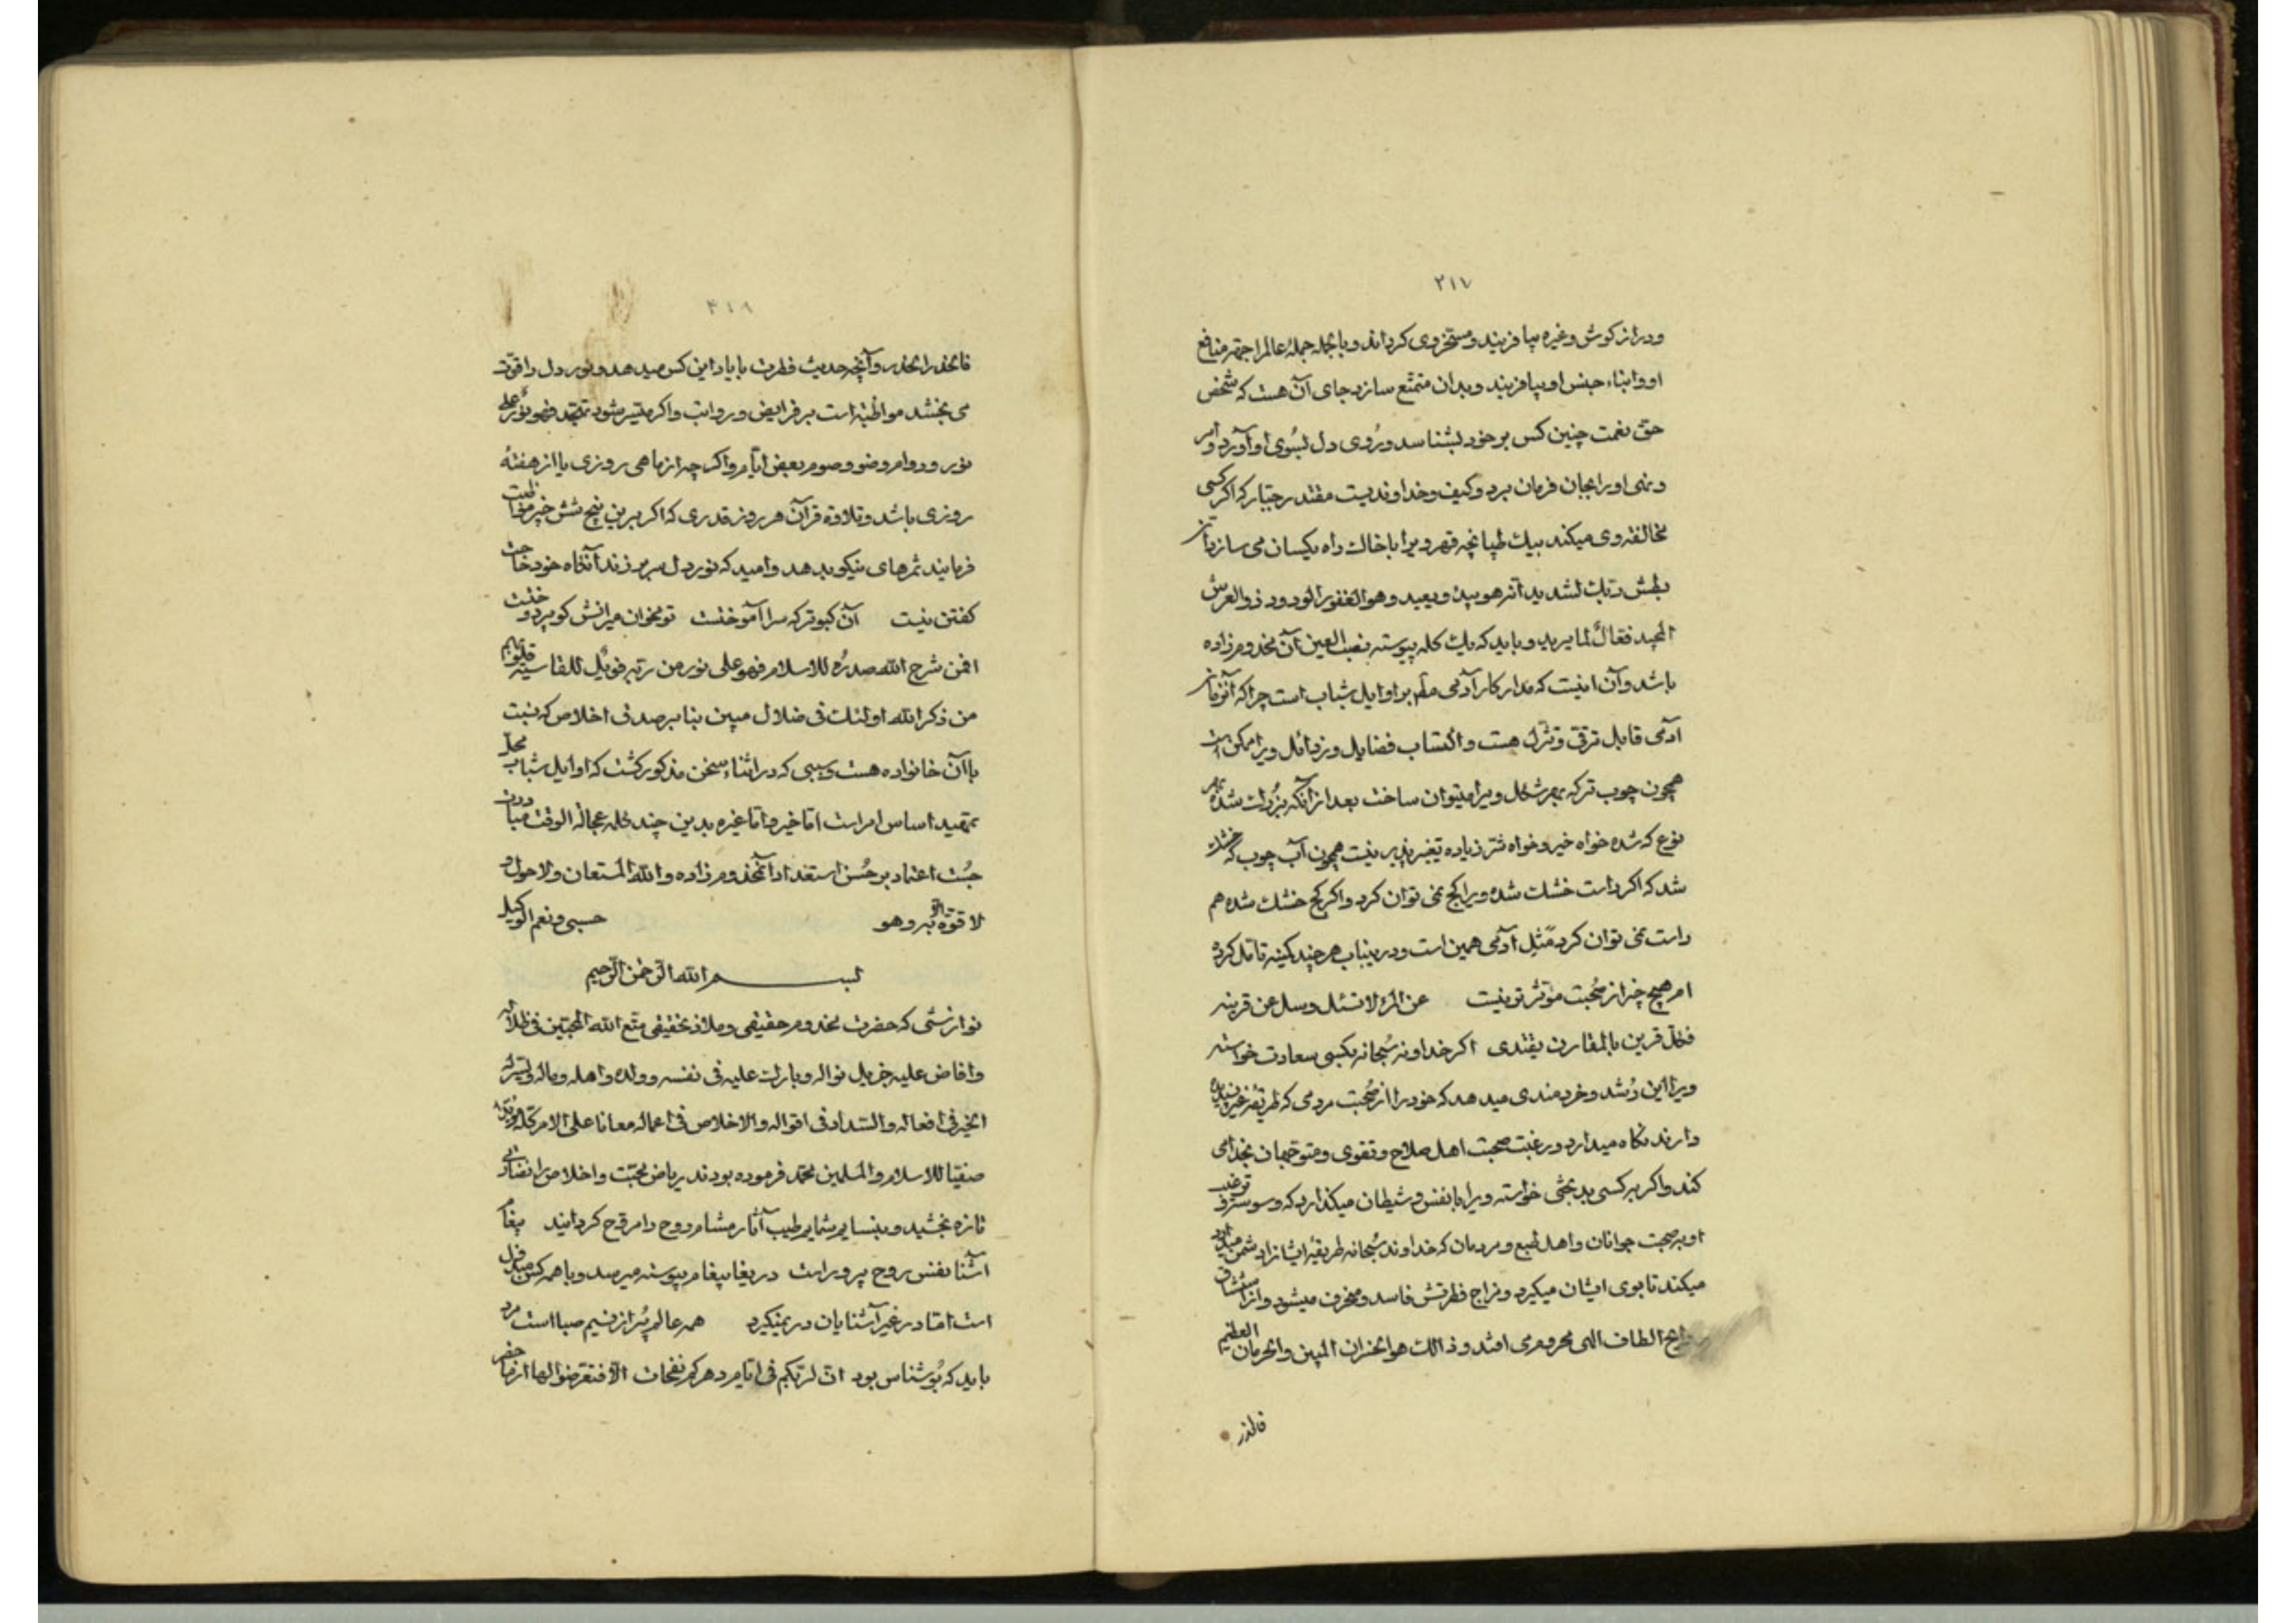 ۲۱۷
ودراز كوش وغيره بيافريند ومسخر وى كرداند وبالجمله جملهٔ عالم را جهة منافع
او وابناء جنس او بيافريند وبدان متمتع سازد جاى آن هست كه شخص
حق نعمت چنين كس بر خود بشناسد ورُوى دل بسُوى او آورد وامر
ونهى او را بجان فرمان برد وكيف وخداونديست مقتدر جبّار كه اكر كسى
مخالفة وى ميكند بيك طپانچه قهر ويرا با خاك راه يكسان مى سازد انّ
بطش ربّك لشديد انّه هو يبدئ ويعيد وهو الغفور الودود ذو العرش
المجيد فعّالٌ لما يريد وبايد كه يك كلمه پيوسته نصب العين آن مخدوم زاده
باشد وآن اينست كه مدار كار آدمى بر اوايل شباب است چرا كه آنزمان
آدمى قابل ترقى وتنزّل هست واكتساب فضايل ورذائل ويرا ممكن است
همچون چوب تركه بهر شكل ويرا ميتوان ساخت بعد از آنكه بزُرك شده بهر
نوع كه شده خواه خير وخواه شرّ زياده تغيير پذير نيست همچون آن چوب كه خشك
شد كه اكر راست خشك شده ويرا كج نمى توان كرد واكر كج خشك شده هم
راست نمى توان كرد مَثَل آدمى همين است ودرينباب هر چند كمينه تامّل كرده
ام هيچ چيز از صُحبت مؤثّرتر نيست عن المرء لا تسئل وسل عن قرينه
فكل قرين بالمقارن يقتدى اكر خداوند سُبحانه بكسى سعادت خواسته
ويرا اين رُشد وخردمندى ميدهد كه خود را از صُحبت مردمى كه طريقهٔ غير پسنديده
دارند نكاه ميدارد ورغبت صحبت اهل صلاح وتقوى ومتوجّهان بخداى
كند واكر به كسى بدبختى خواسته ويرا با نفس وشيطان ميكذارد كه وسوسه وترغيب
او بصحبت جوانان واهل طبع ومردمان كه خداوند سُبحانه طريقهٔ ايشانرا دشمن ميدارد
ميكند تا بوى ايشان ميكيرد ومزاج فطرتش فاسد ومنحرف ميشود واز استنشاق
روايح الطاف الهى محروم مى افتد وذلك هو الخسران المبين والحرمان العظيم
فالحذر
۴۱۸
فالحذر الحذر وآنچه حديث فطرت با ياد اين كس ميدهد ونور دل را قوّت
مى بخشد مواظبة است بر فرايض ورواتب واكر ميسّر شود تهجّد فهو نورٌ على
نور ودوام وضو وصوم بعض ايّام واكر چه از ماهى روزى يا از هفتهٔ
روزى باشد وتلاوة قرآن هر روز قدرى كه اكر برين پنج شش چيز مواظبت
فرمايند ثمرهاى نيكو بدهد واميد كه نور دل سر بر زند آنكاه خود حاجت
كفتن نيست آن كبوتر كه سرا آموخنست تو مخوان ميرانش كو پر دوخنست
افمن شرح اللّه صدرُه للاسلام فهو على نور من ربّه فويلٌ للقاسية قلوبهم
من ذكر اللّه اولئك فى ضلال مبين بنا بر صدق اخلاص كه نسبت
باآن خانواده هست وسببى كه در اثناء سخن مذكور كشت كه اوايل شباب محلّ
تمهيد اساس امر است امّا خير وامّا غيره بدين چند كلمه عجالة الوقت مبادرت
جُست اعتماد بر حُسن استعداد آنمخدوم زاده واللّه المستعان ولا حول و
لا قوّة الّا به وهو حسبى ونعم الوكيل
بسم اللّه الرّحمن الرّحيم
نوازشى كه حضرت مخدوم حقيقى وملاذ تحقيقى متّع اللّه المحبّين فى ظلاله
وافاض عليه جزيل نواله وبارك عليه فى نفسه وولده واهله وماله ويسّر له
الخير فى افعاله والسّداد فى اقواله والاخلاص فى اعماله معانا على الامر كلّه مؤيّدا
صفيّا للاسلام والمسلمين محمّد فرموده بودند رياض محبّت واخلاص را نضارتى
تازه بخشيد وبنسايم شمايم طيب آثار مشام روح را مروّح كردانيد پيغام
آشنا نفس روح پرور است دريغا پيغام پيوسته ميرسد وبا همه كس مبذول
است امّا در غير آشنايان در نميكيرد همه عالم پُر از نسيم صبا است مرد
بايد كه بُوشناس بود انّ لربّكم فى ايّام دهركم نفحات الا فتعرّضوا لها از ما حضر